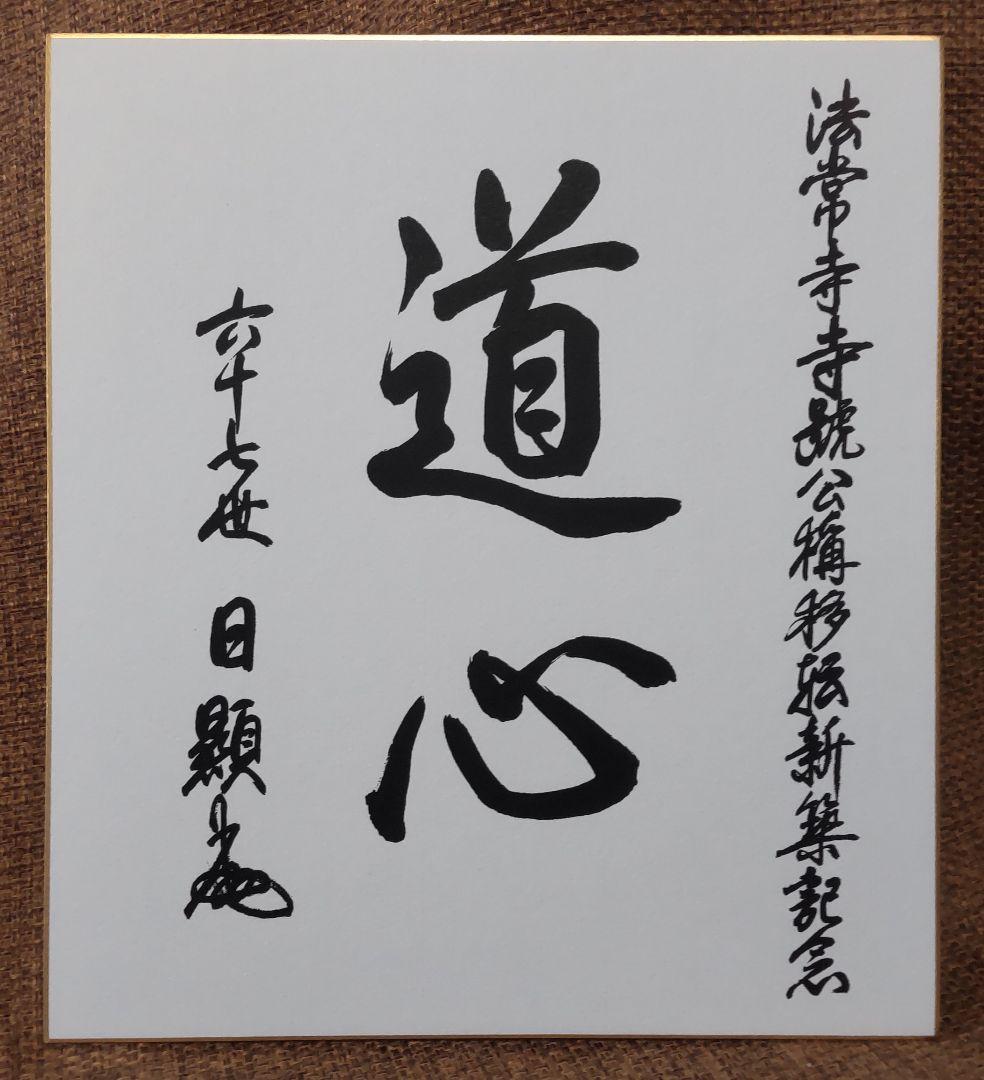 法常寺寺號公稱移転新築記念
道心
六十七世 日顯